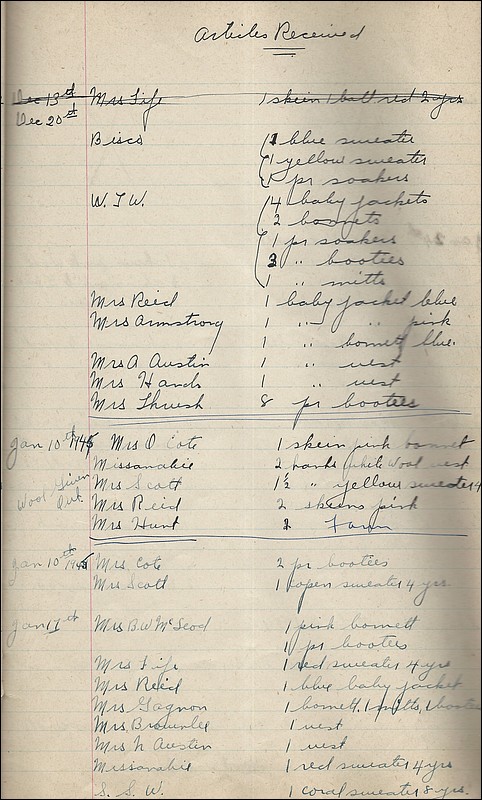 Articles Received
Dec 13th Mrs Fife 1 skein 1 ball red 2 yrs
Dec 20th
Bisco 1 blue sweater
1 yellow sweater
1 pr soakers
W. T. W. 4 baby jackets
2 bonnets
1 pr soakers
3 " booties
1 " mitts
Mrs Reid 1 baby jacket blue
Mrs Armstrong 1 " " pink
1 " bonnet blue.
Mrs A Austin 1 " vest
Mrs Hands 1 " vest
Mrs Thrush 8 pr booties
Jan 10th 1945 Mrs O Cote 1 skein pink bonnet
Missanabie 2 hanks white wool vest
Wool Given Out. Mrs Scott 1½ " yellow sweater 4
Mrs Reid 2 skeins pink
Mrs Hunt 2 Fawn
Jan 10th 1945 Mrs Cote 2 pr booties
Mrs Scott 1 open sweater 4 yrs
Jan 17 Mrs B. W McLeod 1 pink bonnett
1 pr booties
Mrs Fife 1 red sweater 4 yrs
Mrs Reid 1 blue baby jacket
Mrs Gagnon 1 bonnett, 1 mitts, 1 bootee
Mrs. Brownlee 1 vest
Mrs N Austin 1 vest
Missanabie 1 red sweater 4 yrs
S. S. W. 1 coral sweater 8 yrs.